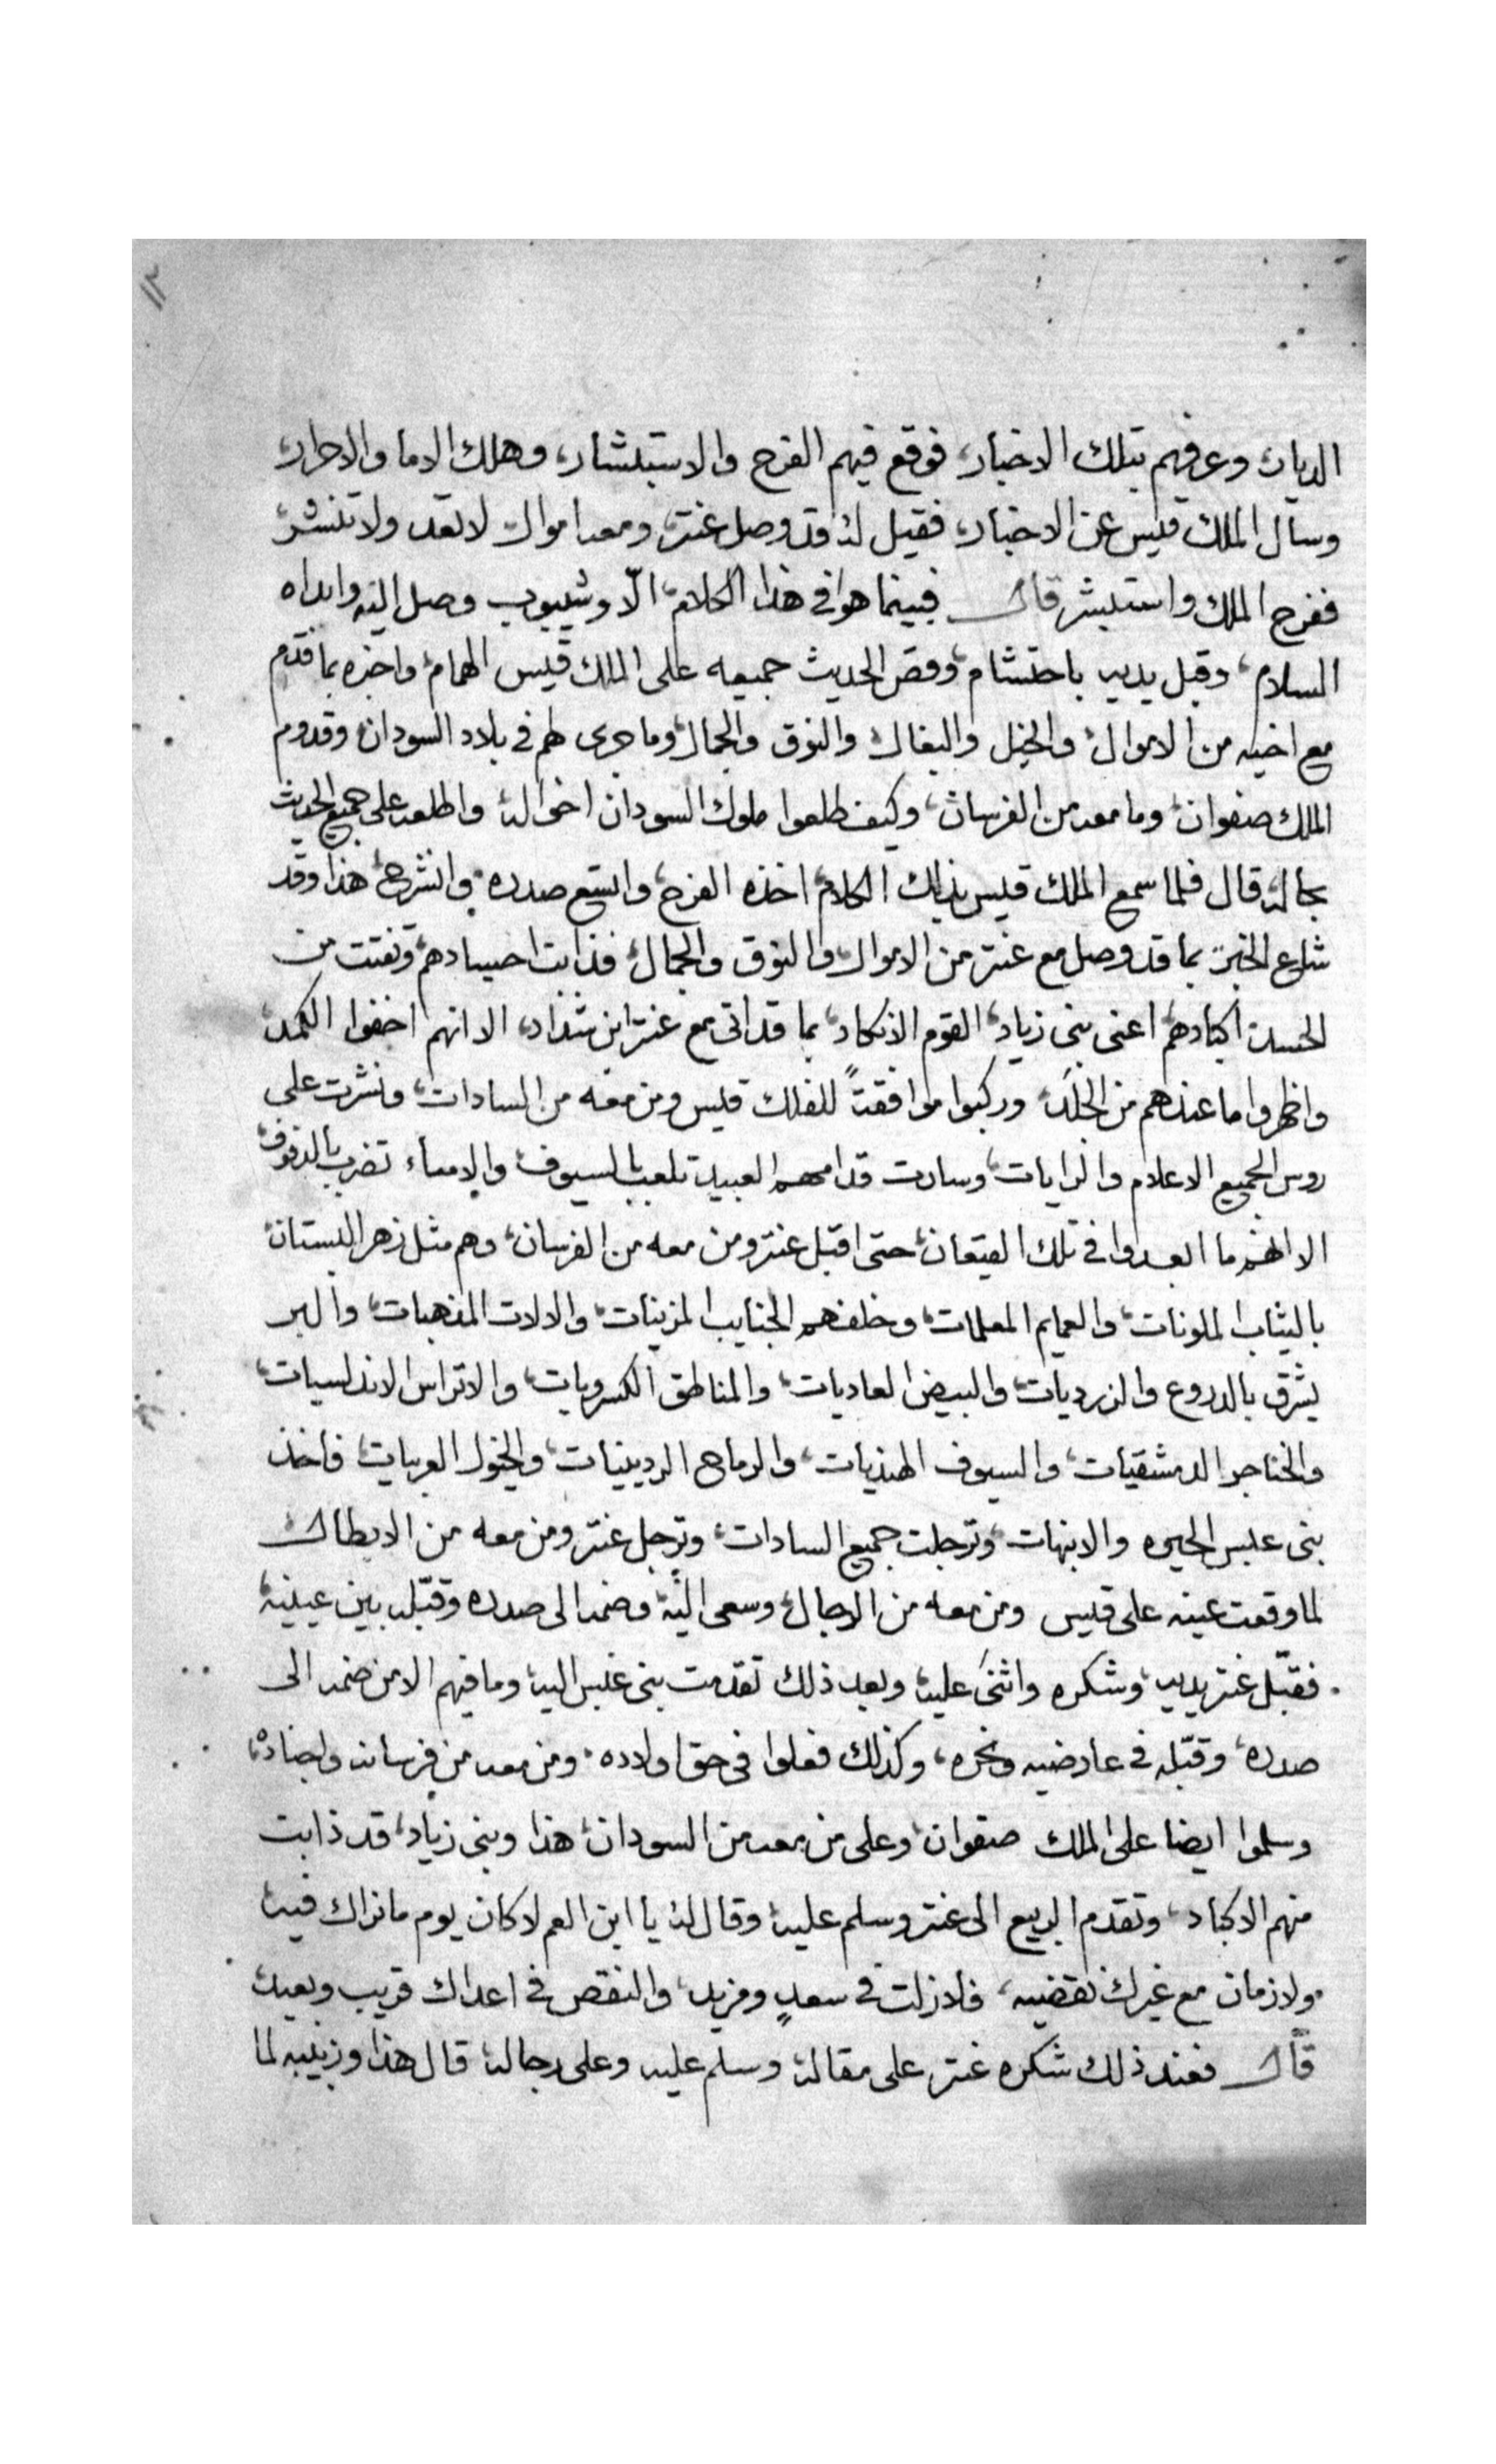 ١٢
الديار، وعرفهم بتلك الاخبار، فوقع فيهم الفرح والاستبشار، وهلك الاما والاحرار،
وسال الملك قيس عن الاخبار، فقيل له قد وصل عنتر، ومعه اموال لا تعد ولا تنشر،
ففرح الملك واستبشر قال فبينما هوا في هذا الكلام، الّا وشيبوب وصل اليه وابداه
السلام، وقبل يديه باحتشام، وقص الحديث جميعه على الملك قيس الهمام، واخبره بما قدم
مع اخيه من الاموال، والخيل والبغال والنوق والجمال، وما جرى لهم في بلاد السودان، وقدوم
الملك صفوان، وما معه من الفرسان، وكيف طلعوا ملوك السودان اخواله، واطلعه على جميع الحديث
بحاله، قال فلما سمع الملك قيس بذلك الكلام، اخذه الفرح، واتسع صدره، وانشرح، هذا وقد
شاع الخبر، بما قد وصل مع عنتر من الاموال، والنوق والجمال، فذابت اجسادهم، وتفتت من
الحسد، اكبادهم، اعنى بنى زياد، القوم الانكاد، بما قد اتى مع عنتر ابن شداد، الا انهم اخفوا الكمد،
واظهروا ما عندهم من الجلَد، وركبوا موافقتً للملك قيس ومن معه من السادات، ونشرت على
روس الجميع الاعلام والرايات، وسارت قدامهم العبيد تلعب بالسيوف، والاماء تضرب بالدفوف،
الا انهم ما ابعدوا في تلك القيعان، حتى اقبل عنتر ومن معه من الفرسان، وهم مثل زهر البستان،
بالثياب الملونات، والعمايم المعلمات، وخلفهم الجنايب المزينات، والالات المذهبات، والبر
يشرق بالدروع والزرديات، والبيض العاديات، والمناطق الكسرويات، والاتراس الاندلسيات،
والخناجر الدمشقيات، والسيوف الهنديات، والرماح الردينيات، والخيول العربيات، فاخذ
بنى عبس الحيره والانبهات، وترجلت جميع السادات، وترجل عنتر ومن معه من الابطال
لما وقعت عينه على قيس ومن معه من الرجال، وسعى اليه، وضمه الى صدره وقبّله بين عينيه،
فقبّل عنتر يديه، وشكره واثنى عليه، وبعد ذلك تقدمت بنى عبس اليه، وما فيهم الا من ضمه الى
صدره، وقبّله في عارضيه ونحره، وكذلك فعلوا في حق اولاده، ومن معه من فرسانه واجناده،
وسلموا ايضا على الملك صفوان، وعلى من معه من السودان، هذا وبنى زياد، قد ذابت
منهم الاكباد، وتقدم الربيع الى عنتر وسلم عليه، وقال له يا ابن العم لا كان يوم ما نراك فيه،
ولا زمان مع غيرك نقضيه، فلا زلت في سعدٍ ومزيد، والنقص في اعداك قريب وبعيد،
قال فعند ذلك شكره عنتر على مقاله، وسلم عليه وعلى رجاله، قال هذا وزبيبه لما